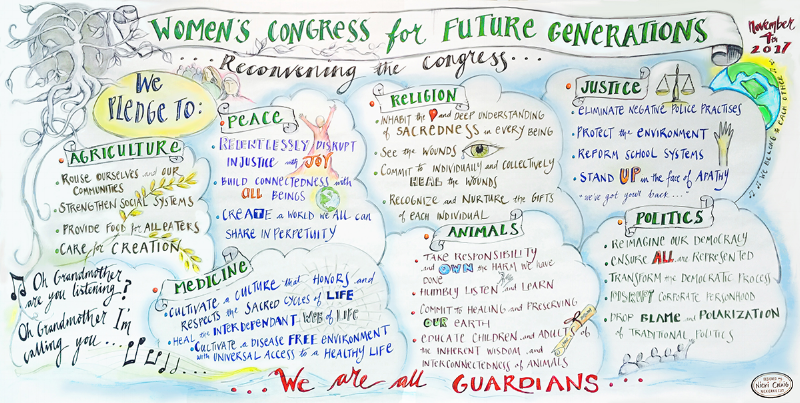 WOMEN'S CONGRESS for FUTURE GENERATIONS
November
4th
2017
... Reconvening the Congress...
We
PLEDGE TO:
AGRICULTURE
• ROUSE OURSELVES and OUR
COMMUNITIES
• STRENGTHEN SOCIAL SYSTEMS
• PROVIDE FOOD for ALL EATERS
• CARE for CREATION
PEACE
• RELENTLESSLY DISRUPT
INJUSTICE with JOY
• BUILD CONNECTEDNESS with
ALL BEINGS
• CREATE a WORLD WE ALL CAN
SHARE IN PERPETUITY
RELIGION
• INHABIT the and DEEP UNDERSTANDING
of SACREDNESS in EVERY BEING
• SEE the WOUNDS
• COMMIT to INDIVIDUALLY and COLLECTIVELY
HEAL the WOUNDS
• RECOGNIZE and NURTURE the GIFTS
of EACH INDIVIDUAL
JUSTICE
• ELIMINATE NEGATIVE POLICE PRACTISES
• PROTECT the ENVIRONMENT
• REFORM SCHOOL SYSTEMS
• STAND UP in the FACE of APATHY
*we've got your back...
WE ARE
EACH OTHER
MEDICINE
• CULTIVATE a CULTURE that HONORS and
RESPECTS the SACRED CYCLES of LIFE
• HEAL the INTERDEPENDANT WEB of LIFE
• CULTIVATE a DISEASE FREE ENVIRONMENT
with UNIVERSAL ACCESS to a HEALTHY LIFE
ANIMALS
• TAKE RESPONSIBILITY
and OWN the HARM WE HAVE
DONE
• HUMBLY LISTEN and LEARN
• COMMIT to HEALING and PRESERVING
OUR EARTH
• EDUCATE CHILDREN and ADULTS of
the INHERENT WISDOM and
INTERCONNECTEDNESS of ANIMALS
POLITICS
• REIMAGINE OUR DEMOCRACY
• ENSURE ALL are REPRESENTED
• TRANSFORM the DEMOCRATIC PROCESS
• CORPORATE PERSONHOOD
• DROP BLAME and POLARIZATION
of TRADITIONAL POLITICS
Oh Grandmother
are you listening?
Oh Grandmother I'm
calling you...
... We are all GUARDIANS...